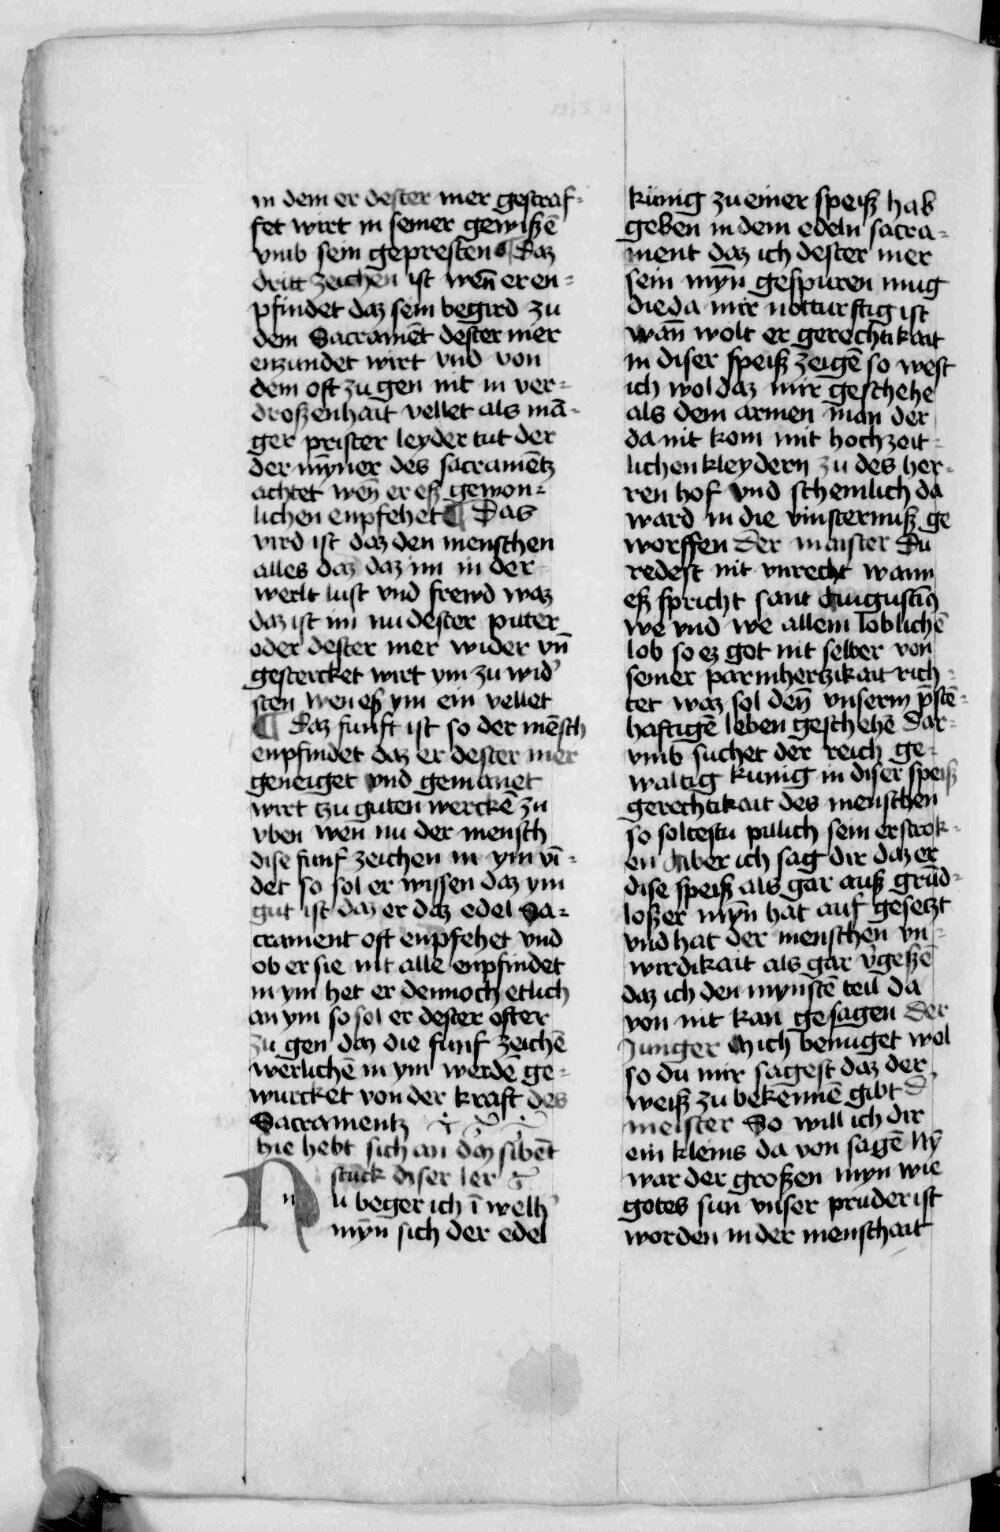 in dem er dester mer gestraf-
fet wirt in seiner gewißē
vmb sein gepresten ¶ Daz
dritt zeichen ist wen̄ er en-
pfindet daz sein begird zu
dem Sacramēt dester mer
enzundet wirt vnd von
dem oft zu gen nit in ver-
droßenhait vellet als mā-
ger prister leyder tut der
der myner des sacramētz
achtet wen̄ er eß gewon-
lichen enpfehet ¶ Das
vird ist daz den menschen
alles daz daz im in der
werlt lust vnd frewd waz
daz ist im nu dester puter
oder dester mer wider vn̄
gestercket wirt ym zu wid'
sten wen eß ym ein vellet
¶ Daz funft ist so der mēsch
enpfindet daz er dester mer
geneiget vnd gemanet
wirt tzu guten werckē zu
vben wen nu der mensch
dise funf zeichen in ym vī-
det so sol er wissen daz ym
gut ist daz er daz edel Sa-
crament oft enpfehet vnd
ob er sie nit alle enpfindet
in ym het er dennoch etlich
an ym so sol er dester ofter
zu gen daz die funf zeichē
werlichē in ym werdē ge-
wurcket von der kraft des
Sacramentz
hie hebt sich an daz sibēt
stuck diser ler
Nu beger ich ī welh'
myn̄ sich der edel
kunig zu einer speiß hab
geben in dem edeln sacra-
ment daz ich dester mer
sein myn̄ gespuren mug
die da mir notturftig ist
wan̄ wolt er gerechtikait
in diser speiß zeigē so west
ich wol daz mir geschehe
als dem armen man der
da nit kom mit hochzeit-
lichen kleydern zu des her-
ren hof vnd schemlich da
ward in die vinsternuß ge
worffen Der maister Du
redest nit vnrecht wann
eß spricht sant Augustin9
we vnd we allem loblichē
lob so ez got nit selber von
seiner parmhertzikait rich-
tet waz sol den̄ vnserm p̄stē-
haftigē leben geschehē Dar-
vmb suchet der reich ge-
waltig kunig in diser speiß
gerechtikait des menschen
so soltestu pillich sein erschrok-
en Aber ich sag dir daz er
dise speiß als gar auß grūd-
loßer myn̄ hat auf gesetzt
vnd hat der menschen vn-
wirdikait als gar v'geßē
daz ich den mynstē teil da
von nit kan gesagen Der
Junger Mich benuget wol
so du mir sagest daz der
weiß zu bekennē gibt D'
meister So will ich dir
ein kleins da von sagē Ny̅
war der großen myn wie
gotes sun vnser pruder ist
worden in der menschait